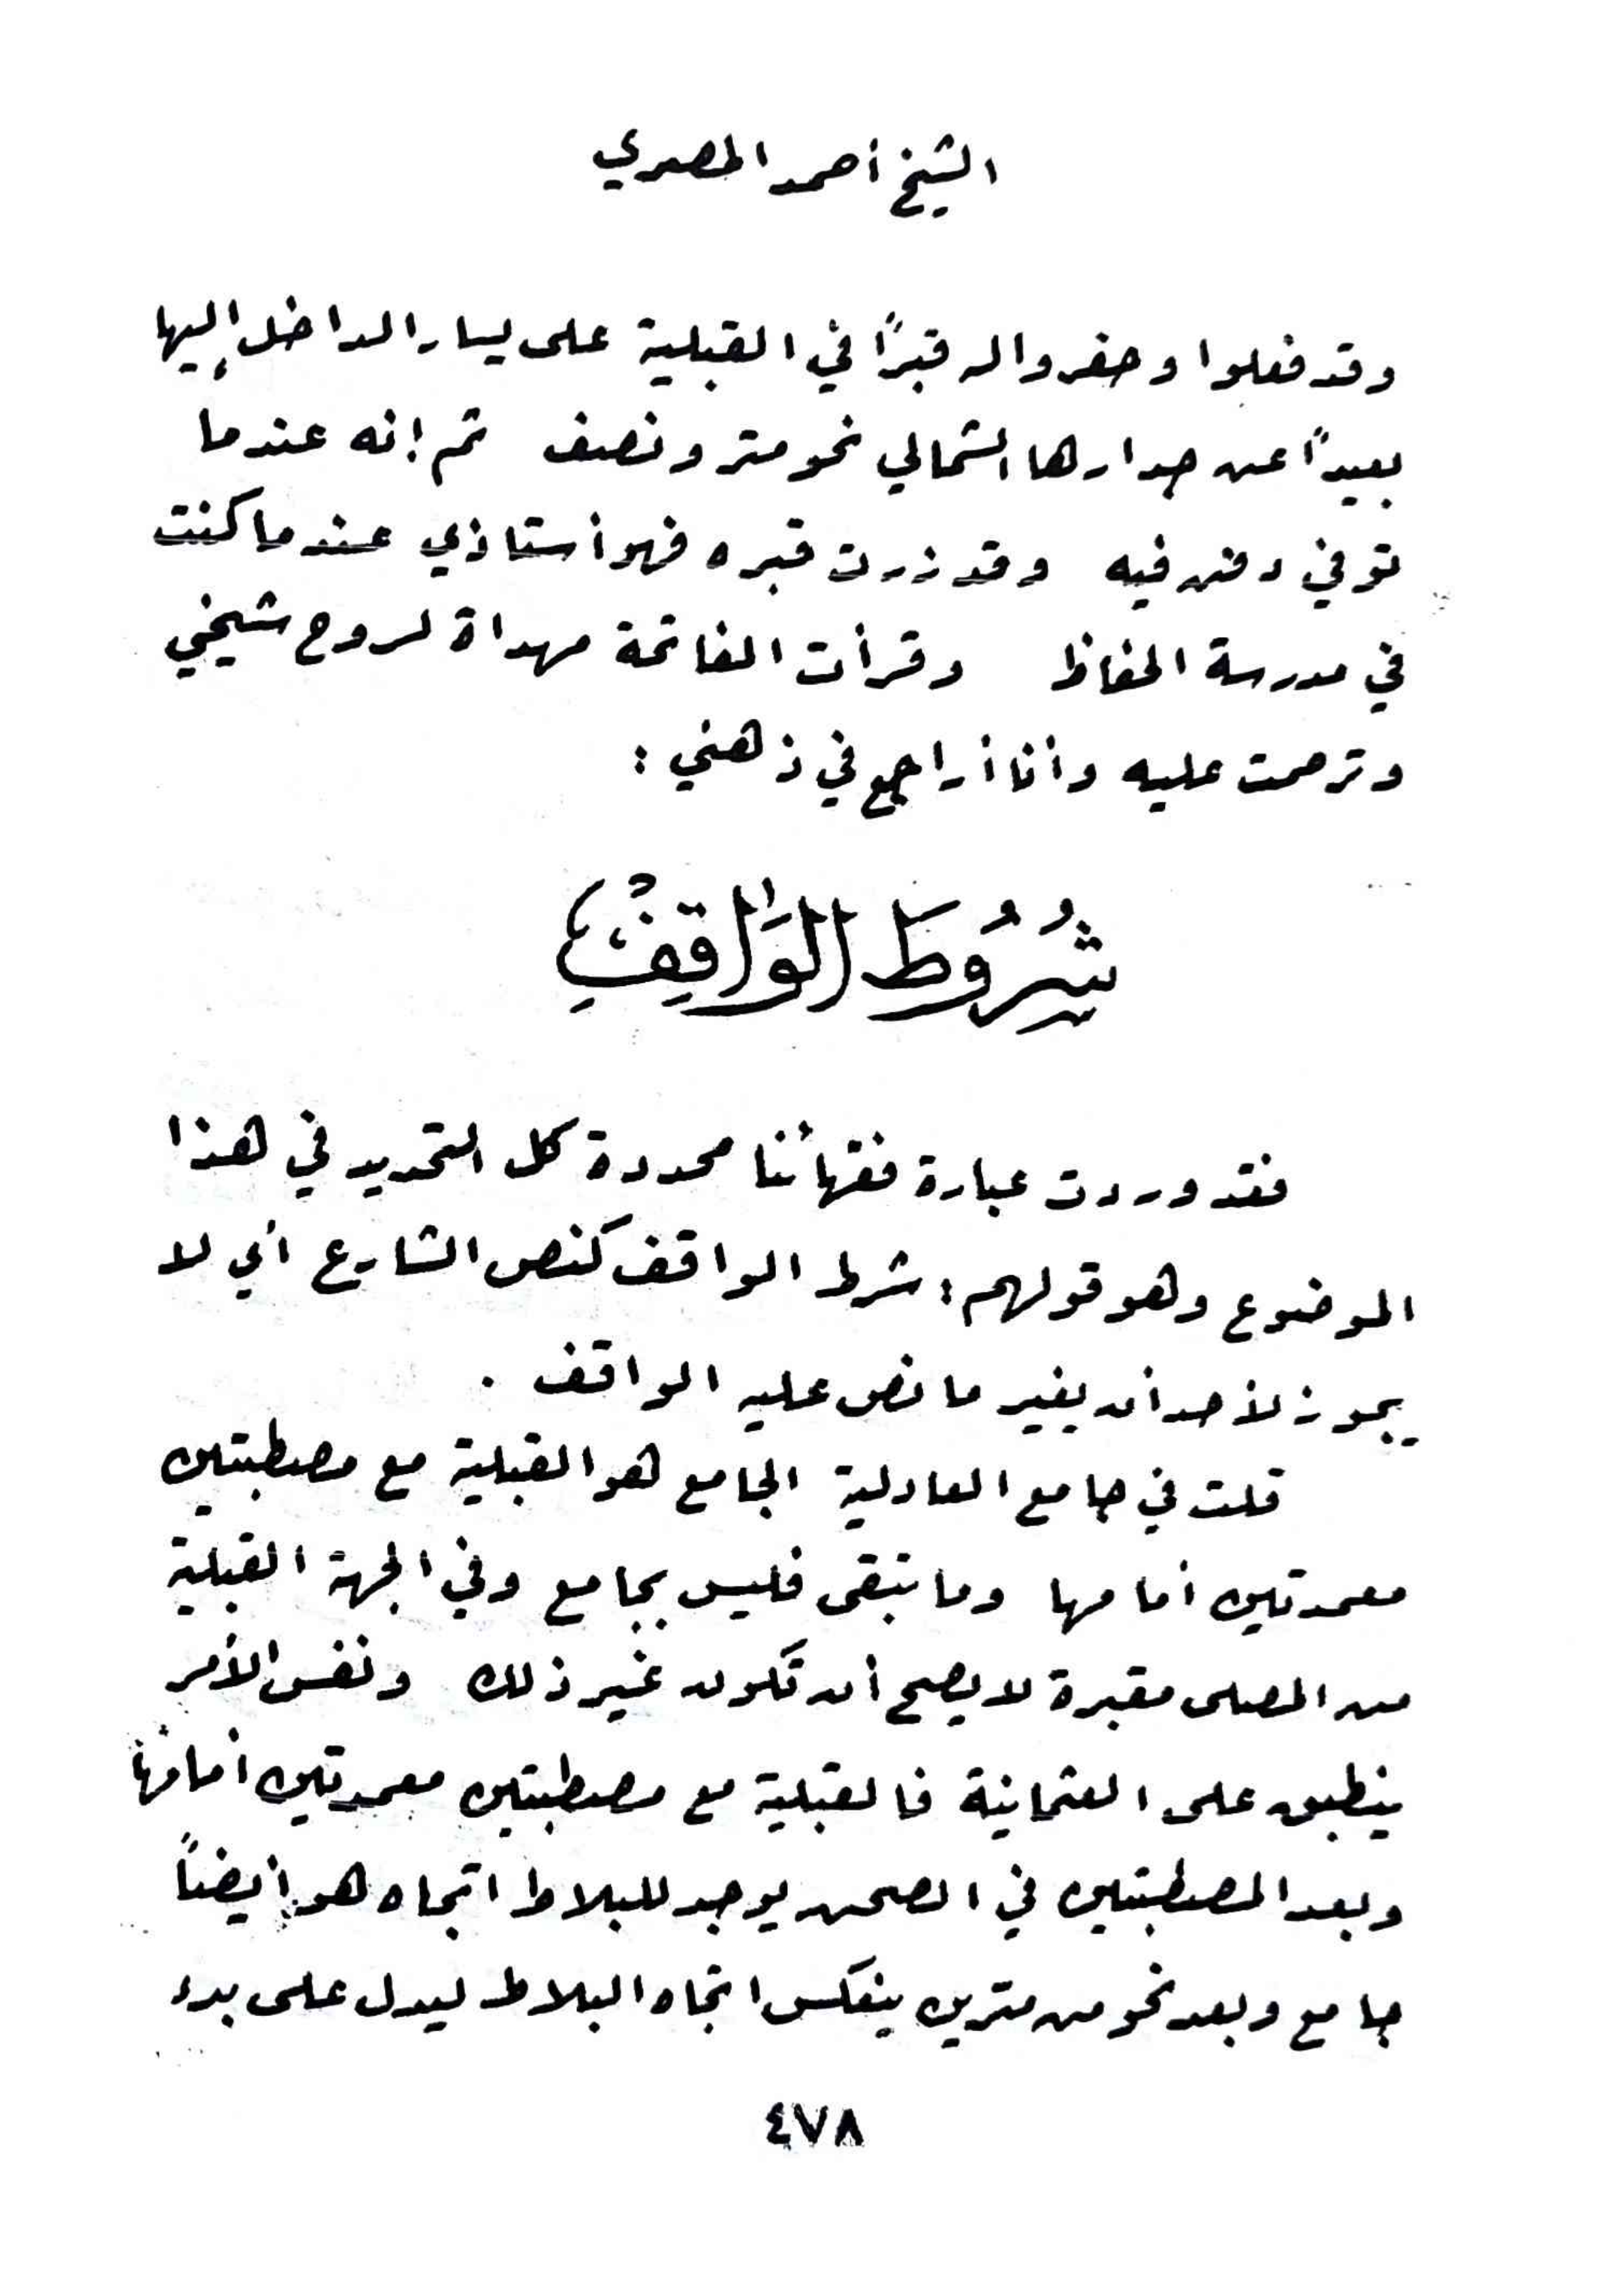 الشيخ أحمد المصري
وقد فعلوا وحفروا له قبرًا في القبلية على يسار الداخل إليها
بعيدًا عن جدارها الشمالي نحو متر ونصف ثم إنه عندما
توفي دفن فيه وقد زرت قبره فهو أستاذي عندما كنت
في مدرسة الحفاظ وقرأت الفاتحة مهداة لروح شيخي
وترحمت عليه وأنا أراجع في ذهني :
شُرُوطَ الوَاقِفِ
فقد وردت عبارة فقهائنا محددة كل التحديد في هذا
الموضوع وهو قولهم : شرط الواقف كنص الشارع أي لا
يجوز لأحد أن يغير ما نص عليه الواقف .
قلت في جامع العادلية الجامع هو القبلية مع مصطبتين
معمدتين أمامها وما تبقى فليس بجامع وفي الجهة القبلية
من المصلى مقبرة لا يصح أن تكون غير ذلك ونفس الأمر
ينطبق على العثمانية فالقبلية مع مصطبتين معمدتين أمامها
وبعد المصطبتين في الصحن يوجد للبلاط اتجاه هو أيضاً
جامع وبعد نحو من مترين ينعكس اتجاه البلاط ليدل على بدء
٤٧٨